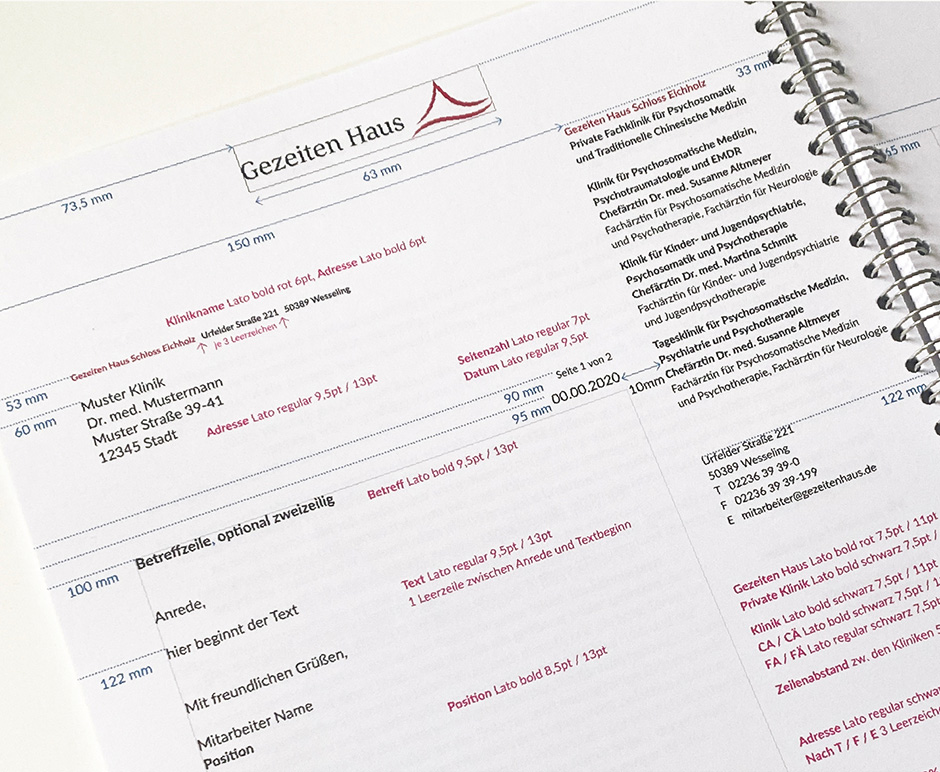 Gezeiten Haus
73,5 mm
63 mm
150 mm
33 mm
65 mm
Gezeiten Haus Schloss Eichholz
Private Fachklinik für Psychosomatik
und Traditionelle Chinesische Medizin
Klinik für Psychosomatische Medizin,
Psychotraumatologie und EMDR
Chefärztin Dr. med. Susanne Altmeyer
Fachärztin für Psychosomatische Medizin
und Psychotherapie, Fachärztin für Neurologie
Klinik für Kinder- und Jugendpsychiatrie,
Psychosomatik und Psychotherapie
Chefärztin Dr. med. Martina Schmitt
Fachärztin für Kinder- und Jugendpsychiatrie
und Jugendpsychotherapie
Tagesklinik für Psychosomatische Medizin,
Psychiatrie und Psychotherapie
Chefärztin Dr. med. Susanne Altmeyer
Fachärztin für Psychosomatische Medizin
und Psychotherapie, Fachärztin für Neurologie
Klinikname Lato bold rot 6pt, Adresse Lato bold 6pt
Gezeiten Haus Schloss Eichholz Urfelder Straße 221 50389 Wesseling
je 3 Leerzeichen
53 mm
60 mm
Muster Klinik
Dr. med. Mustermann
Muster Straße 39-41
12345 Stadt
Adresse Lato regular 9,5pt / 13pt
Seitenzahl Lato regular 7pt
Datum Lato regular 9,5pt
90 mm
Seite 1 von 2
95 mm
00.00.2020
10mm
122 mm
Urfelder Straße 221
50389 Wesseling
T 02236 39 39-0
F 02236 39 39-199
E mitarbeiter@gezeitenhaus.de
Betreff Lato bold 9,5pt / 13pt
Betreffzeile, optional zweizeilig
100 mm
Text Lato regular 9,5pt / 13pt
1 Leerzeile zwischen Anrede und Textbeginn
Anrede,
hier beginnt der Text
122 mm
Mit freundlichen Grüßen,
Position Lato bold 8,5pt / 13pt
Mitarbeiter Name
Position
Gezeiten Haus Lato bold rot 7,5pt / 11pt
Private Klinik Lato bold schwarz 7,5pt /
Klinik Lato bold schwarz 7,5pt / 11pt
CA / CÄ Lato bold schwarz 7,5pt /
FA / FÄ Lato regular schwarz 7,5pt
Zeilenabstand zw. den Kliniken
Adresse Lato regular
Nach T / F / E 3 Leerzeichen